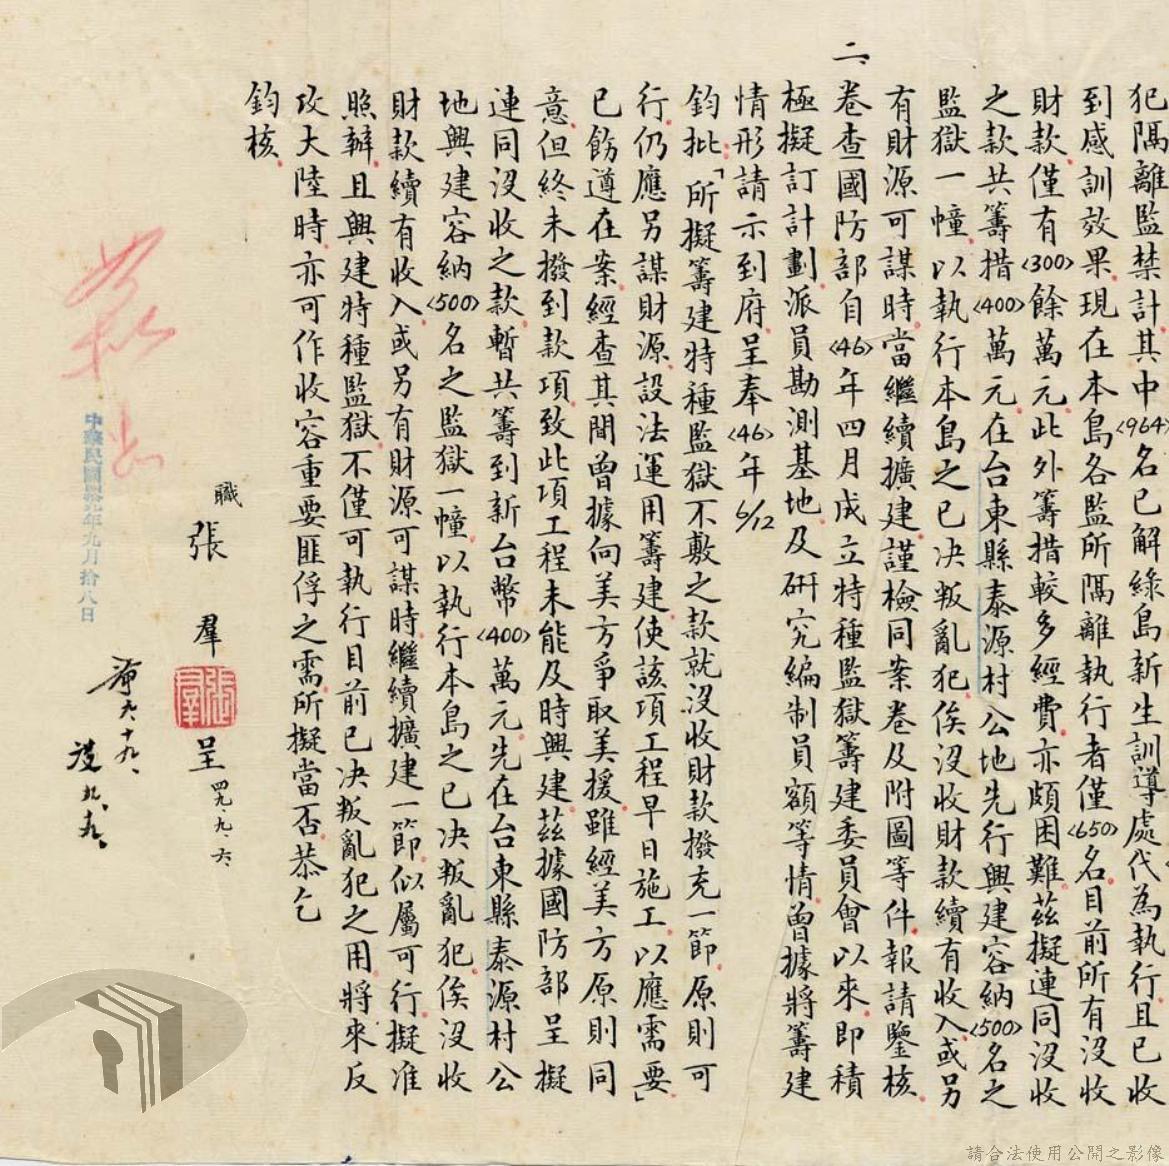 犯隔離監禁計其中<964>名已解綠島新生訓導處代為執行且已收
到感訓效果。現在本島各監所隔離執行者僅<650>名。目前所有沒收
財款。僅有<300>餘萬元。此外籌措較多經費。亦頗困難。茲擬連同沒收
之款共籌措<400>萬元。在台東縣泰源村公地先行興建容納<500>名之
監獄一幢。以執行本島之已決叛亂犯。俟沒收財款續有收入。或另
有財源可謀時。當繼續擴建。謹檢同案卷及附圖等件。報請鑒核。
二、卷查國防部自<46>年四月成立特種監獄籌建委員會以來。即積
極擬訂計劃。派員勘測基地。及研究編制員額等情。曾據將籌建
情形請示到府。呈奉<46>年6/12
鈞批：「所擬籌建特種監獄不敷之款就沒收財款撥充一節。原則可
行。仍應另謀財源。設法運用籌建。使該項工程早日施工。以應需要」
已飭遵在案。經查其間曾據向美方爭取美援。雖經美方原則同
意。但終未撥到款項。致此項工程未能及時興建。茲據國防部呈擬
連同沒收之款。暫共籌到新台幣<400>萬元。先在台東縣泰源村公
地興建容納<500>名之監獄一幢。以執行本島之已決叛亂犯。俟沒收
財款續有收入。或另有財源可謀時。繼續擴建一節。似屬可行。擬准
照辦。且興建特種監獄。不僅可執行目前已決叛亂犯之用。將來反
攻大陸時。亦可作收容重要匪俘之需。所擬當否。恭乞
鈞核。
職 張 羣 呈 四九、九、六、
張羣
九、十九、
中華民國四九年九月拾八日
請合法使用公開之影像